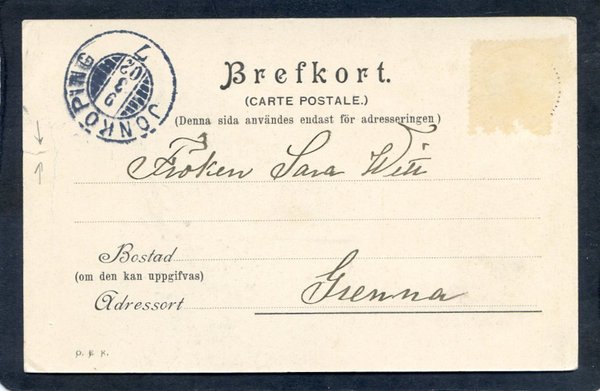 JÖNKÖPING
9
3
02
7
Brefkort.
(CARTE POSTALE.)
(Denna sida användes endast för adresseringen)
Fröken Sara Witt
Bostad
(om den kan uppgifvas)
Grenna
Adressort
D. F. K.